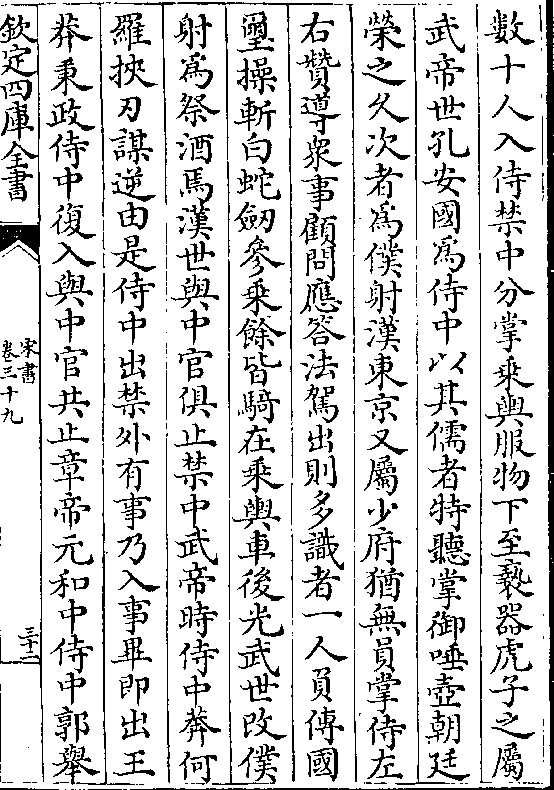 數十人入侍禁中分掌乘輿服物下至褻器虎子之屬
武帝世孔安國爲侍中以其儒者特聽掌御唾壺朝廷
榮之乆次者爲僕射漢東京又屬少府猶無員掌侍左
右贊導衆事顧問應答法駕出則多識者一人負傳國
璽操斬白蛇劒參乘餘皆騎在乘輿車後光武世改僕
射爲祭酒焉漢世與中官俱止禁中武帝時侍中莽何
羅挾刃謀逆由是侍中出禁外有事乃入事畢即出王
莽秉政侍中復入與中官共止章帝元和中侍中郭舉
欽定四庫全書
宋書
卷三十九
三十二